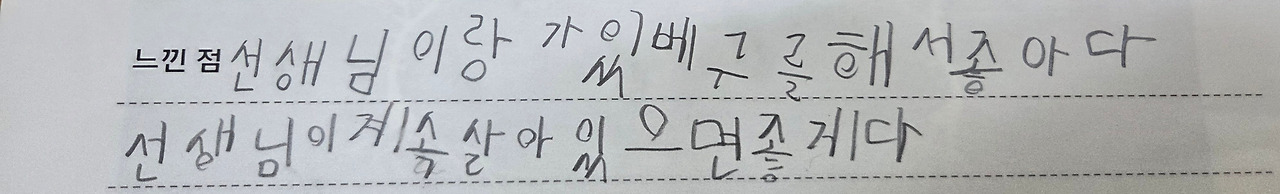 느낀 점 선생님이랑 가잌베구를해서좋아다
선생님이계속살아있으면좋게다